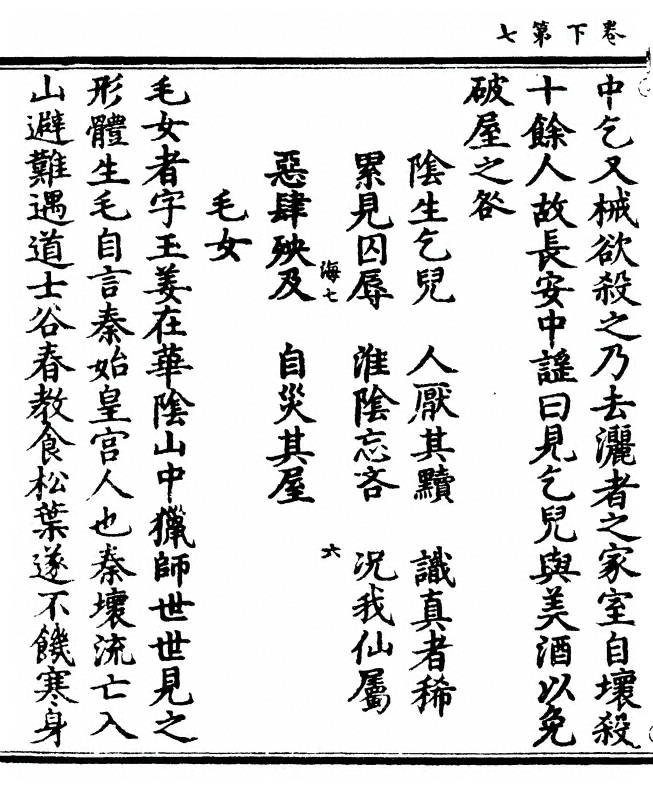 卷下第七
中乞又械欲殺之乃去灑者之家室自壞殺
十餘人故長安中謡曰見乞兒與美酒以免
破屋之咎
陰生乞兒 人厭其黷 識真者稀
累見囚辱 淮陰忘吝 况我仙屬
海七 六
惡肆殃及 自災其屋
毛女
毛女者字玉姜在華陰山中獵師世世見之
形體生毛自言秦始皇宮人也秦壞流亡入
山避難遇道士谷春教食松葉遂不饑寒身